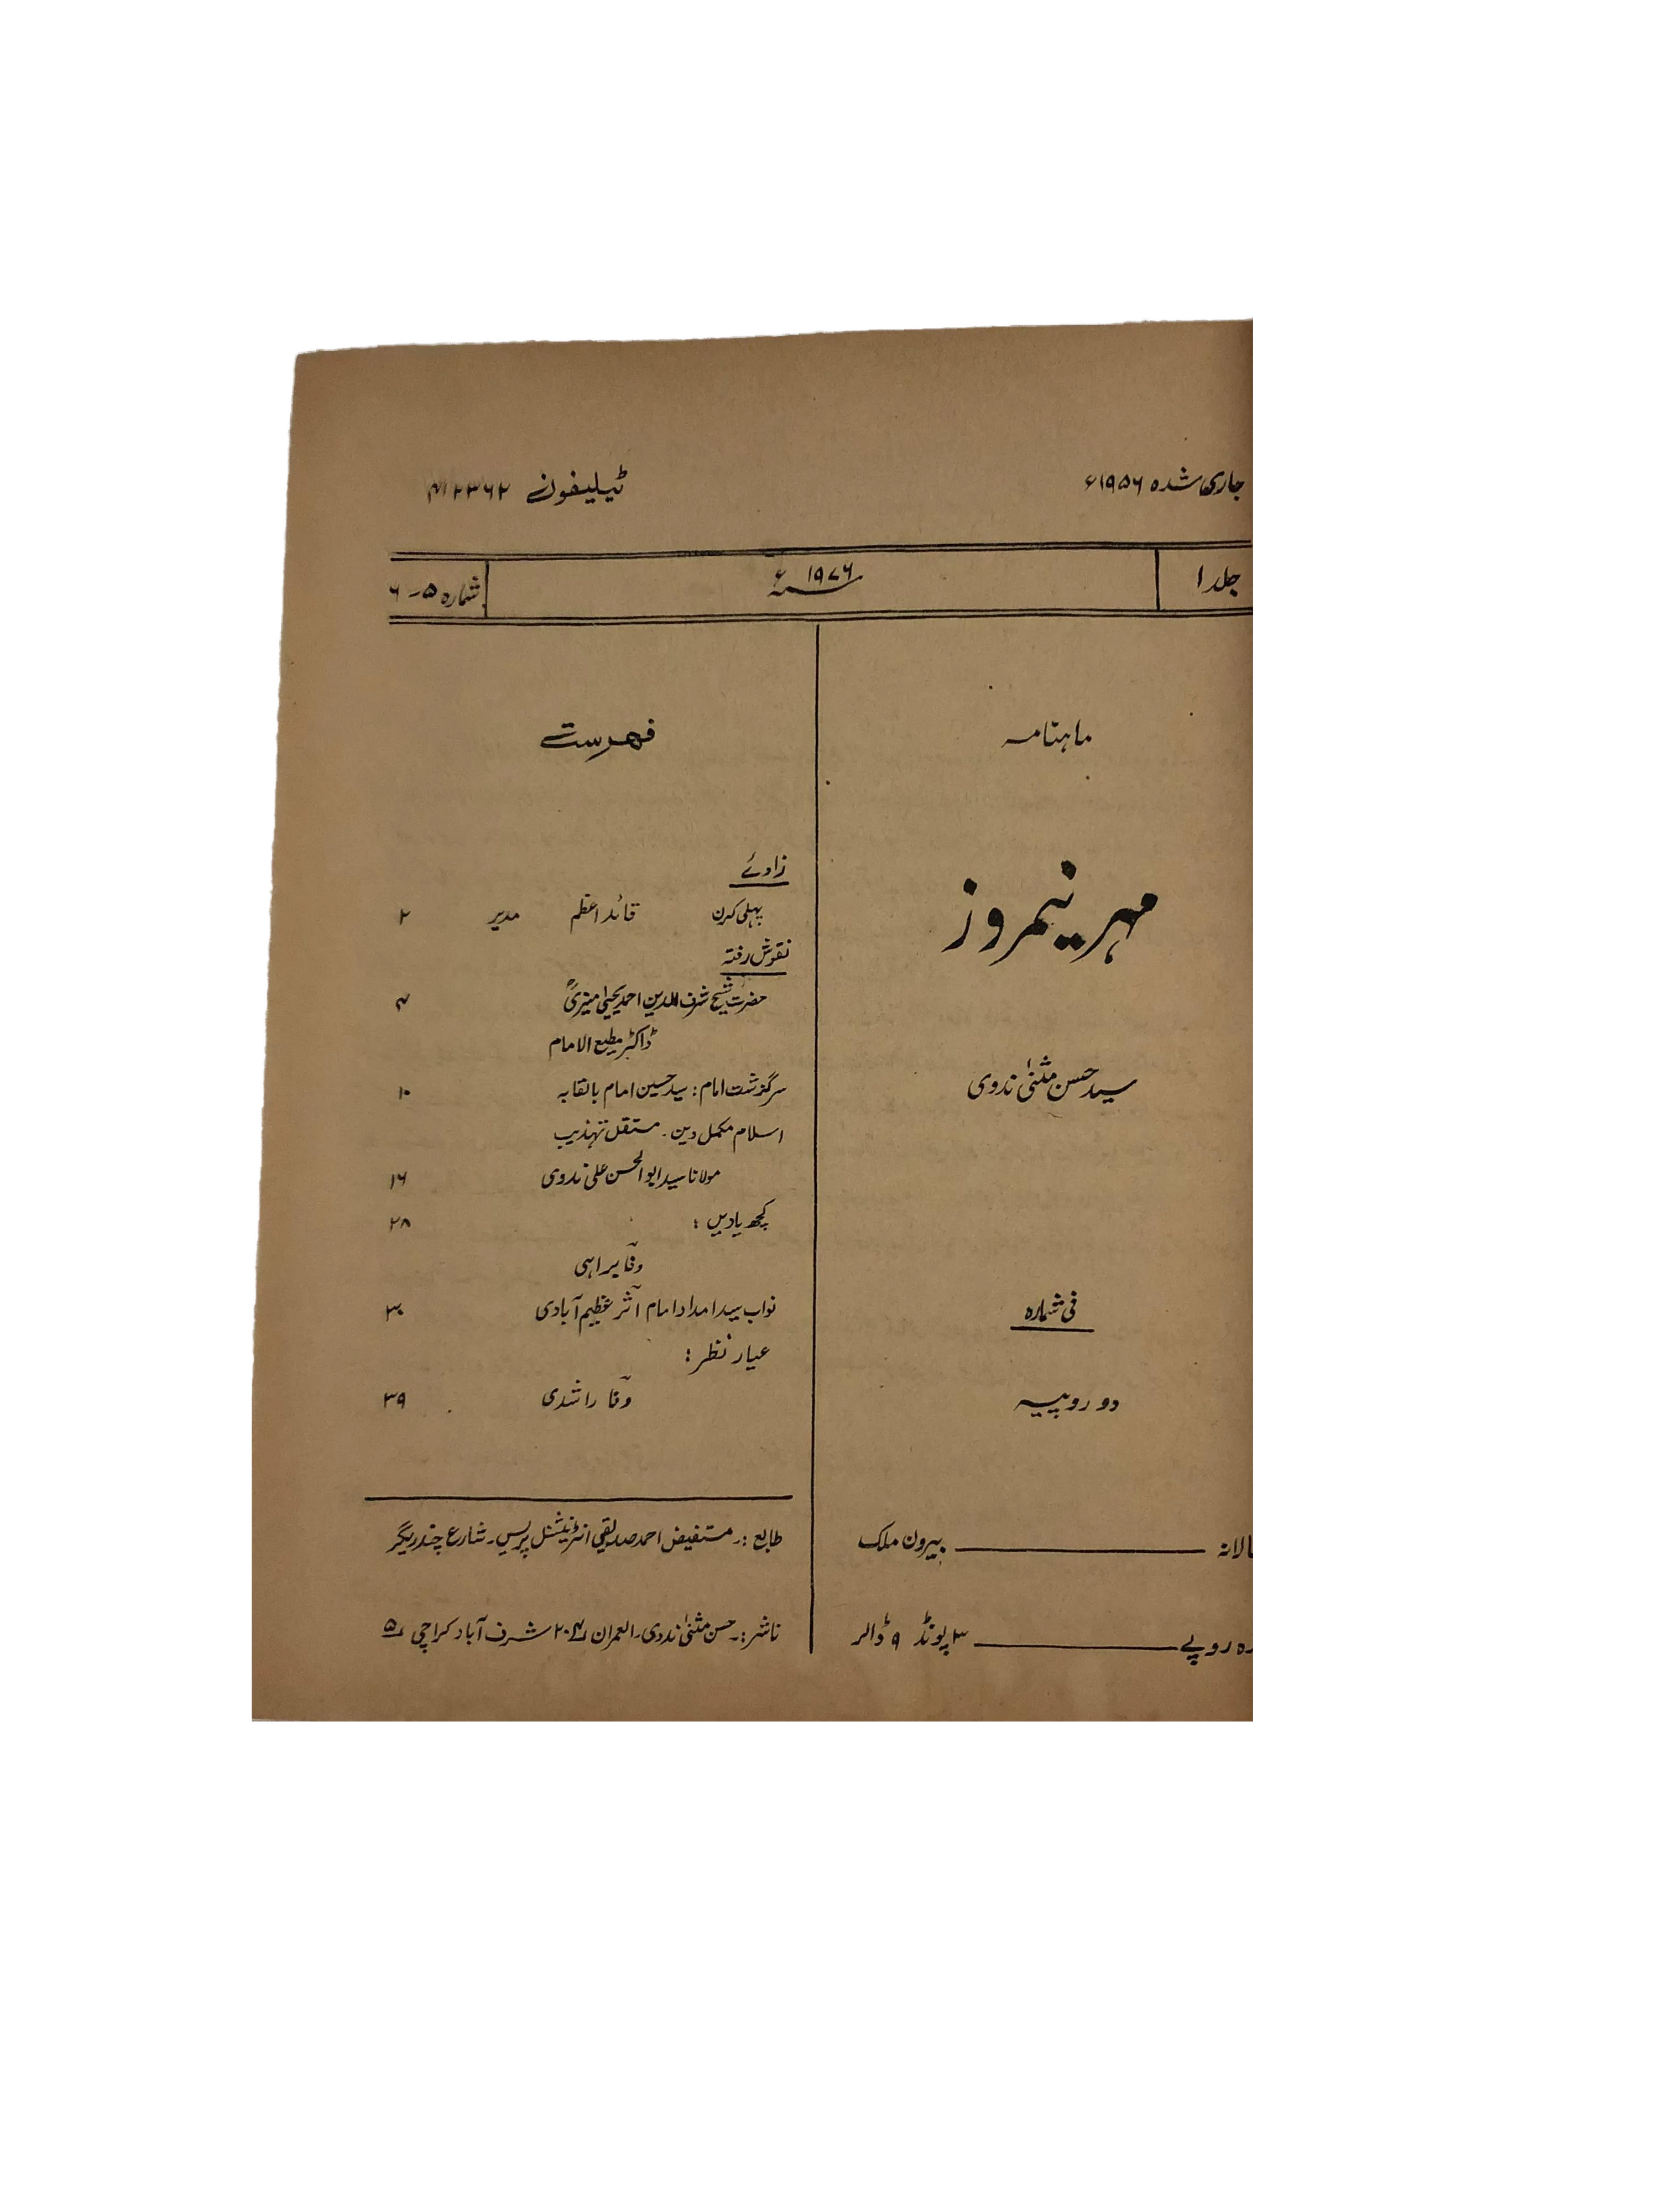 جاری شدہ ۱۹۵۶ء
ٹیلیفون ۴۱۲۳۶۲
جلد ۱
۱۹۷۶ء
شمارہ ۵-۶
ماہنامہ
مہر نیمروز
سید حسن مثنیٰ ندوی
فی شمارہ
دو روپیہ
بیرون ملک
روپے ۳ پونڈ ۹ ڈالر
فہرست
زاوئے
پہلی کرن قائد اعظم مدیر ۲
نقوش رفتہ
حضرت شیخ شرف الدین احمد یحییٰ منیریؒ ۴
ڈاکٹر مطیع الامام
سرگذشت امام: سید حسین امام بالقابہ ۱۰
اسلام مکمل دین۔ مستقل تہذیب
مولانا سید ابوالحسن علی ندوی ۱۶
کچھ یادیں: ۲۸
وفا براہی
نواب سید امداد امام اثر عظیم آبادی ۳۰
عیار نظر:
وفا راشدی ۳۹
طابع:۔ مستفیض احمد صدیقی انٹرنیشنل پریس۔ شارع چندریگر
ناشر:۔ حسن مثنیٰ ندوی۔ العمران ۲۰۴ شرف آباد کراچی ۵